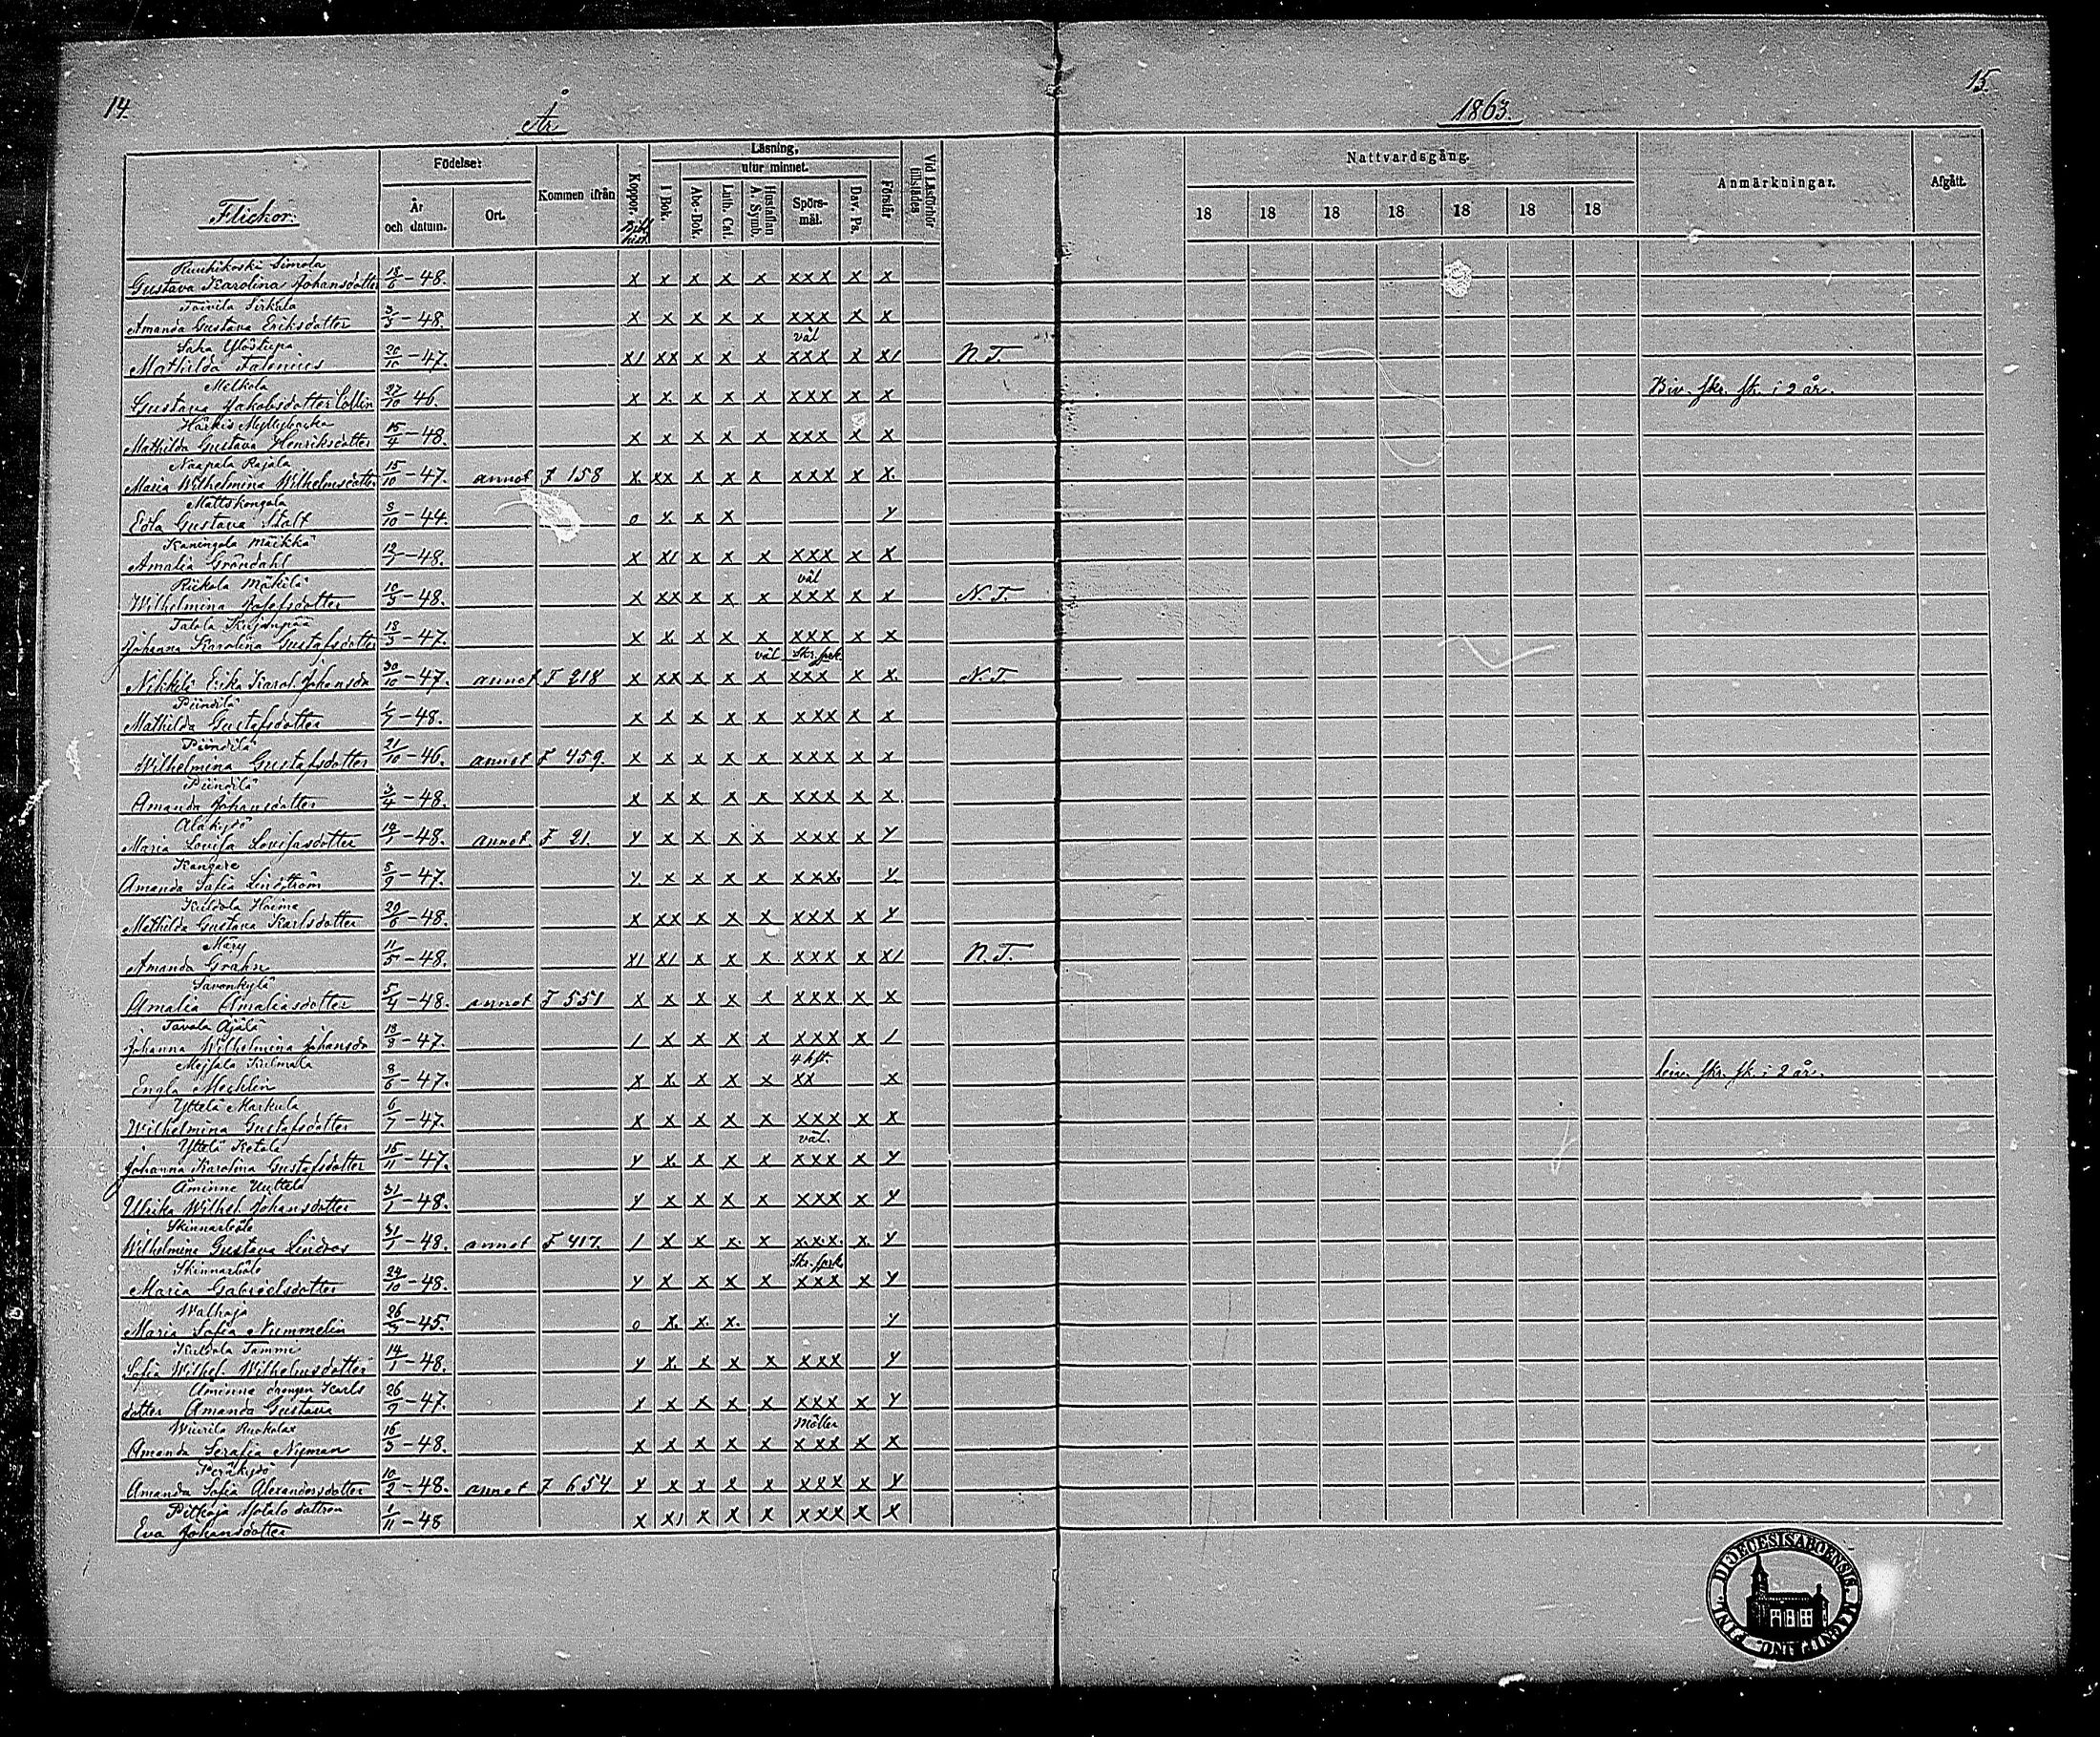 14.
År
1863.
15.
Flickor.
Födelse:
År och datum.
Ort.
Kommen ifrån
Koppor.
Bibl. hist.
Läsning,
I Bok.
utur minnet.
Abc-Bok.
Luth. Cat.
Hustaflan A. Symb.
Spörsmål.
Dav. Ps.
Förstår
Vid Läsförhör tillstädes
Nattvardsgång.
18 18 18 18 18 18 18
Anmärkningar.
Afgått.
Simola
Gustava Karolina Johansdotter 18/6 – 48. x x x x x xxx x x
Toivila Sirkula
Amanda Gustava Eriksdotter 3/3 – 48. x x x x x xxx x x
väl
Mathilda Falenius 20/10 – 47. x1 xx x x x xxx x x1 N.T.
Melkola
Gustava Jakobsdotter Collin 27/10 46. x x x x x xxx x x skr. sk. i 2 år.
Mathilda Gustava Henriksdotter 15/4 – 48. x x x x x xxx x x
Naapala Rajala
Maria Wilhelmina Wilhelmsdotter 15/10 – 47. annot F 158 x. xx x x x xxx x x.
Mattskongala
Edla Gustava Stalt 8/10 – 44. o x x x y
Kaningola Mäikkä
Amalia Gröndahl – 48. x x1 x x x xxx x x
Riekola Mäkilä väl
Wilhelmina Josefsdotter 10/3 – 48. x xx x x x xxx x x N.T.
Talola Kujanpää
Johanna Karolina Gustafsdotter 18/3 – 47. x x x x x xxx x x
väl
Nikkilä Erika Karol. Johansdr 30/10 – 47. annot F 218 x xx x x x xxx x x. N.T.
Piindilä
Mathilda Gustafsdotter 1/7 – 48. x x x x x xxx x x
Piindilä
Wilhelmina Gustafsdotter 21/10 – 46. annot F 459. x x x x x xxx x x
Piindilä
Amanda Johansdotter 3/4 – 48. x x x x x xxx x x.
Alakyrö
Maria Lovisa Lovisasdotter – 48. annot. F 21. y x x x x xxx x y
Kangare
Amanda Sofia Lindström 5/9 – 47. y. x x x x xxx. y.
Kuldola Hoima
Mathilda Gustava Karlsdotter 29/6 – 48. x xx x x x xxx x y
Märy
Amanda Grahn 11/5 – 48. x1 x1 x x x xxx x x1 N.T.
Savonkylä
Amalia Amaliasdotter 5/4 – 48. annot F 551 x x x x x xxx x x
Tavola Äjälä
Johanna Wilhelmina Johansdr 18/9 – 47. 1 x x x x xxx x 1
Kulmala 4 hft.
Engla Mechlin 8/6 – 47. x x. x x x xx x skr. sk. i 2 år.
Yttelä Markula
Wilhelmina Gustafsdotter 6/7 – 47. x x x x x xxx x x
Yttelä Ketola väl.
Johanna Karolina Gustafsdotter 15/11 – 47. y x. x x x xxx x y
Åminne Uuttela
Ulrika Wilhel. Johansdotter 31/1 – 48. y x x x x xxx x y
Skinnarböle
Wilhelmina Gustava Lindros 31/1 – 48. annot F 417. 1 x x x. x x.x.x. x. y
Skinnarböle
Maria Gabrielsdotter 24/10 – 48. y x x x x xxx x y
Walhoja
Maria Sofia Nummelin 26/3 – 45. o x. x. x. y
Kuldola Tammi
Sofia Wilhel. Wilhelmsdotter 14/1 – 48. y x. x x x xxx y
Åminne drengen Karls
dotter Amanda Gustava 26/9 – 47. y x x x. x xxx x y
Wiurila Ruokolax Möller
Amanda Serafia Nyman 16/3 – 48. x x x x x xxx x x
Peräkyrö
Amanda Sofia Alexandersdotter 10/2 – 48. annot F 654 y x x x x xxx x y
Pitkoja
Eva Johansdotter 1/11 – 48 x x1 x x x xxx x x
DIOECESIS ABOENSIS. MAGNI DUC. FINL.